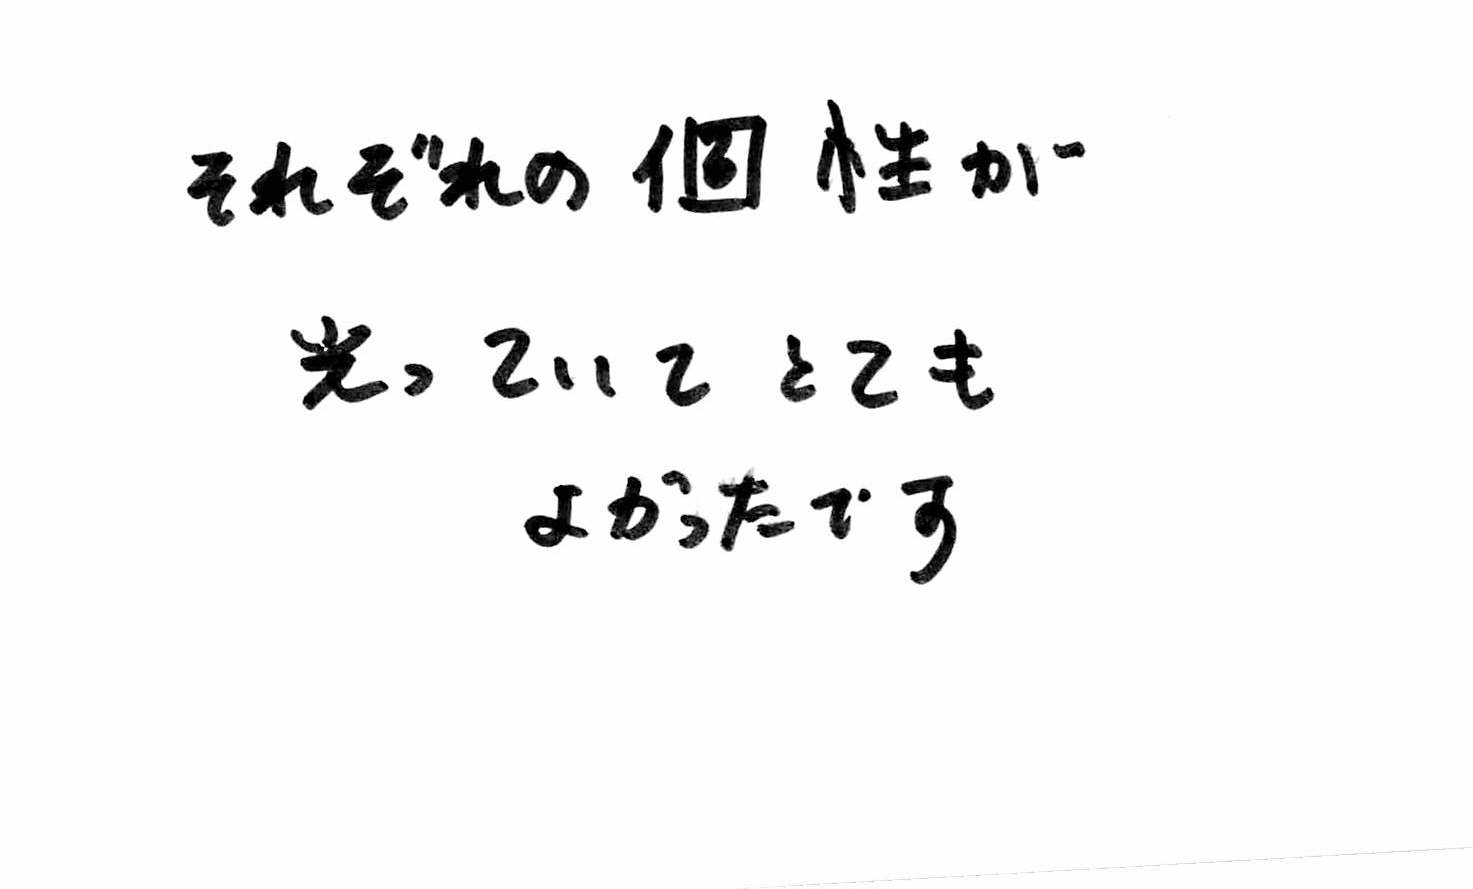 それぞれの個性が
光っていてとても
よかったです